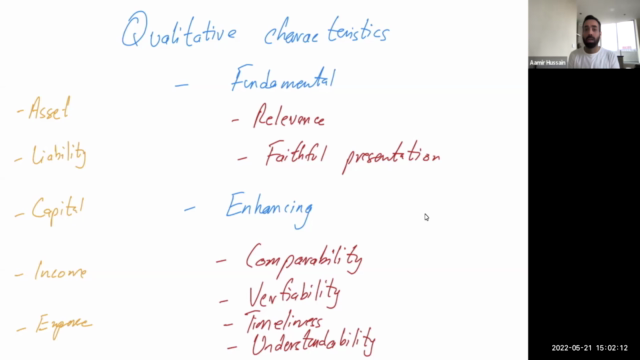 Qualitative characteristics
- Fundamental
- Relevance
- Faithful presentation
- Enhancing
- Comparability
- Verfiability
- Timeliness
- Understandability
- Asset
- Liability
- Capital
- Income
- Expense
Aamir Hussain
2022-05-21 15:02:12